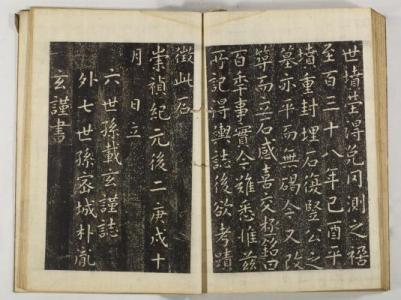 世墳塋得免同測之禍
至百三十八年己酉平
墳重封埋石復竪公之
墓亦平而無碣今又改
而立石感喜交極銘曰
百年事實今雖悉惟茲
所記得輿誌後欲考蹟
徵此石
崇禎紀元後二庚戌十
月 日立
六世孫載玄謹誌
外七世孫密城朴胤
玄謹書